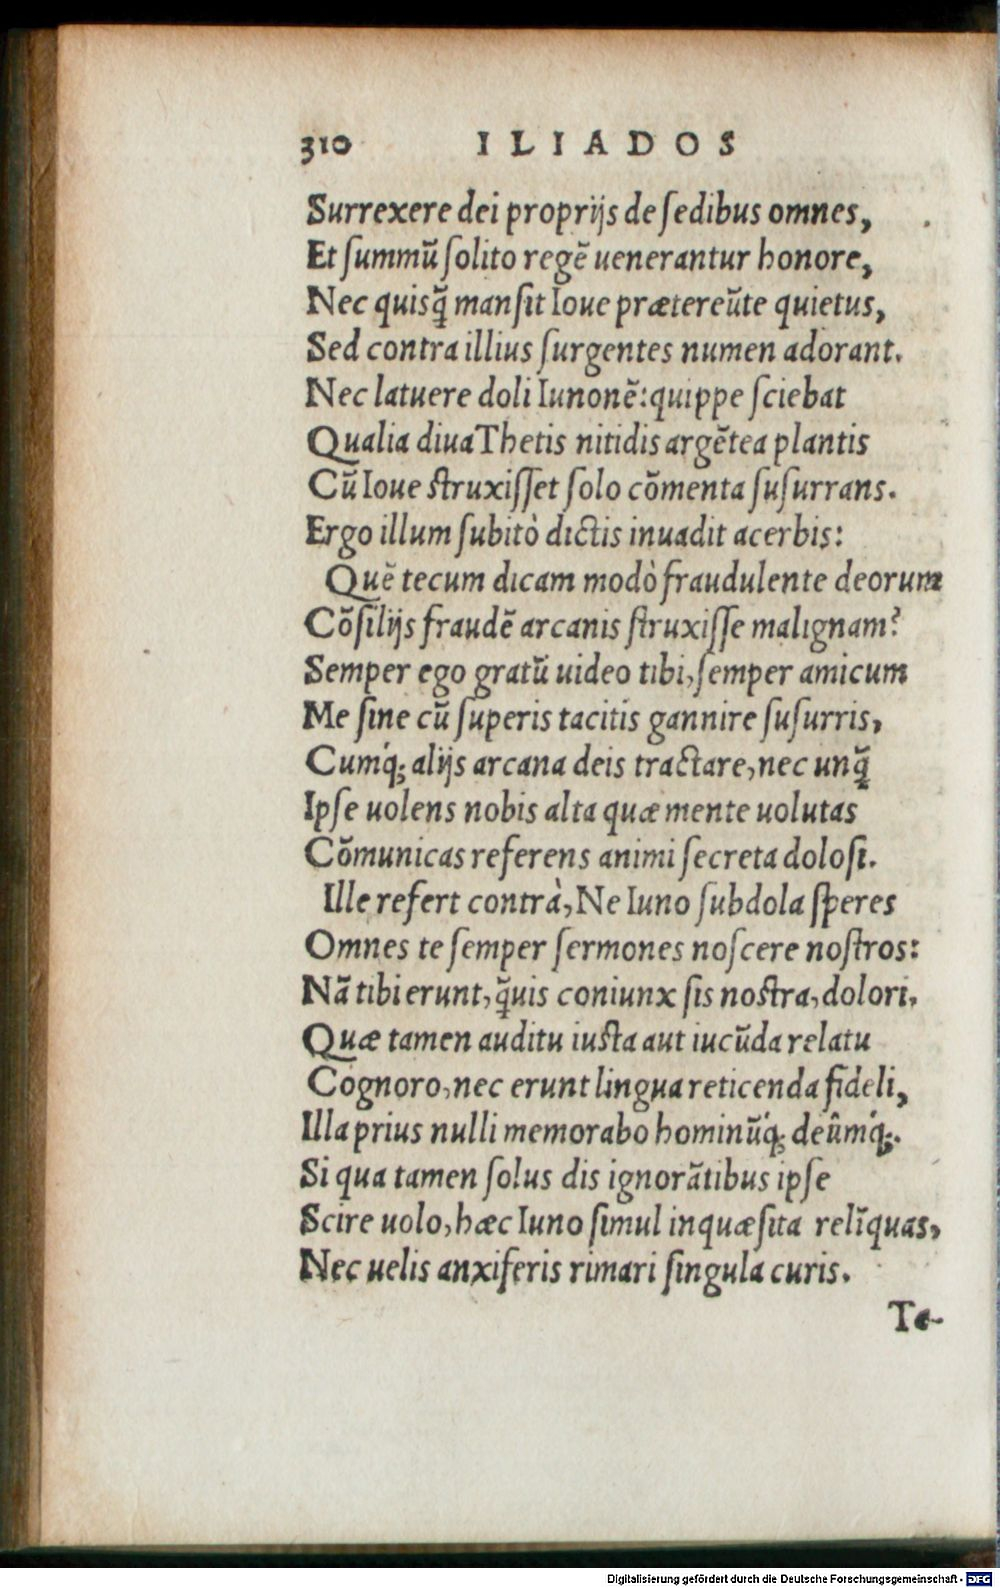 310 ILIADOS
Surrexere dei proprijs de ſedibus omnes,
Et ſummũ ſolito regẽ uenerantur honore,
Nec quisq̃ manſit Ioue prætereũte quietus,
Sed contra illius ſurgentes numen adorant.
Nec latuere doli Iunonẽ: quippe ſciebat
Qualia diua Thetis nitidis argẽtea plantis
Cũ Ioue ſtruxiſſet ſolo cõmenta ſuſurrans.
Ergo illum ſubitò dictis inuadit acerbis:
Quẽ tecum dicam modò fraudulente deorum
Cõſilijs fraudẽ arcanis ſtruxiſſe malignam?
Semper ego gratũ uideo tibi, ſemper amicum
Me ſine cũ ſuperis tacitis gannire ſuſurris,
Cumq́; alijs arcana deis tractare, nec unq̃
Ipſe uolens nobis alta quæ mente uolutas
Cõmunicas referens animi ſecreta doloſi.
Ille refert contrà, Ne Iuno ſubdola ſperes
Omnes te ſemper ſermones noſcere noſtros:
Nã tibi erunt, q̃uis coniunx ſis noſtra, dolori,
Quæ tamen auditu iuſta aut iucũda relatu
Cognoro, nec erunt lingua reticenda fideli,
Illa prius nulli memorabo hominũq́; deûmq́;.
Si qua tamen ſolus dis ignorãtibus ipſe
Scire uolo, hæc Iuno ſimul inquæſita relĩquas,
Nec uelis anxiferis rimari ſingula curis.
Te-
Digitalisierung gefördert durch die Deutsche Forschungsgemeinschaft - DFG